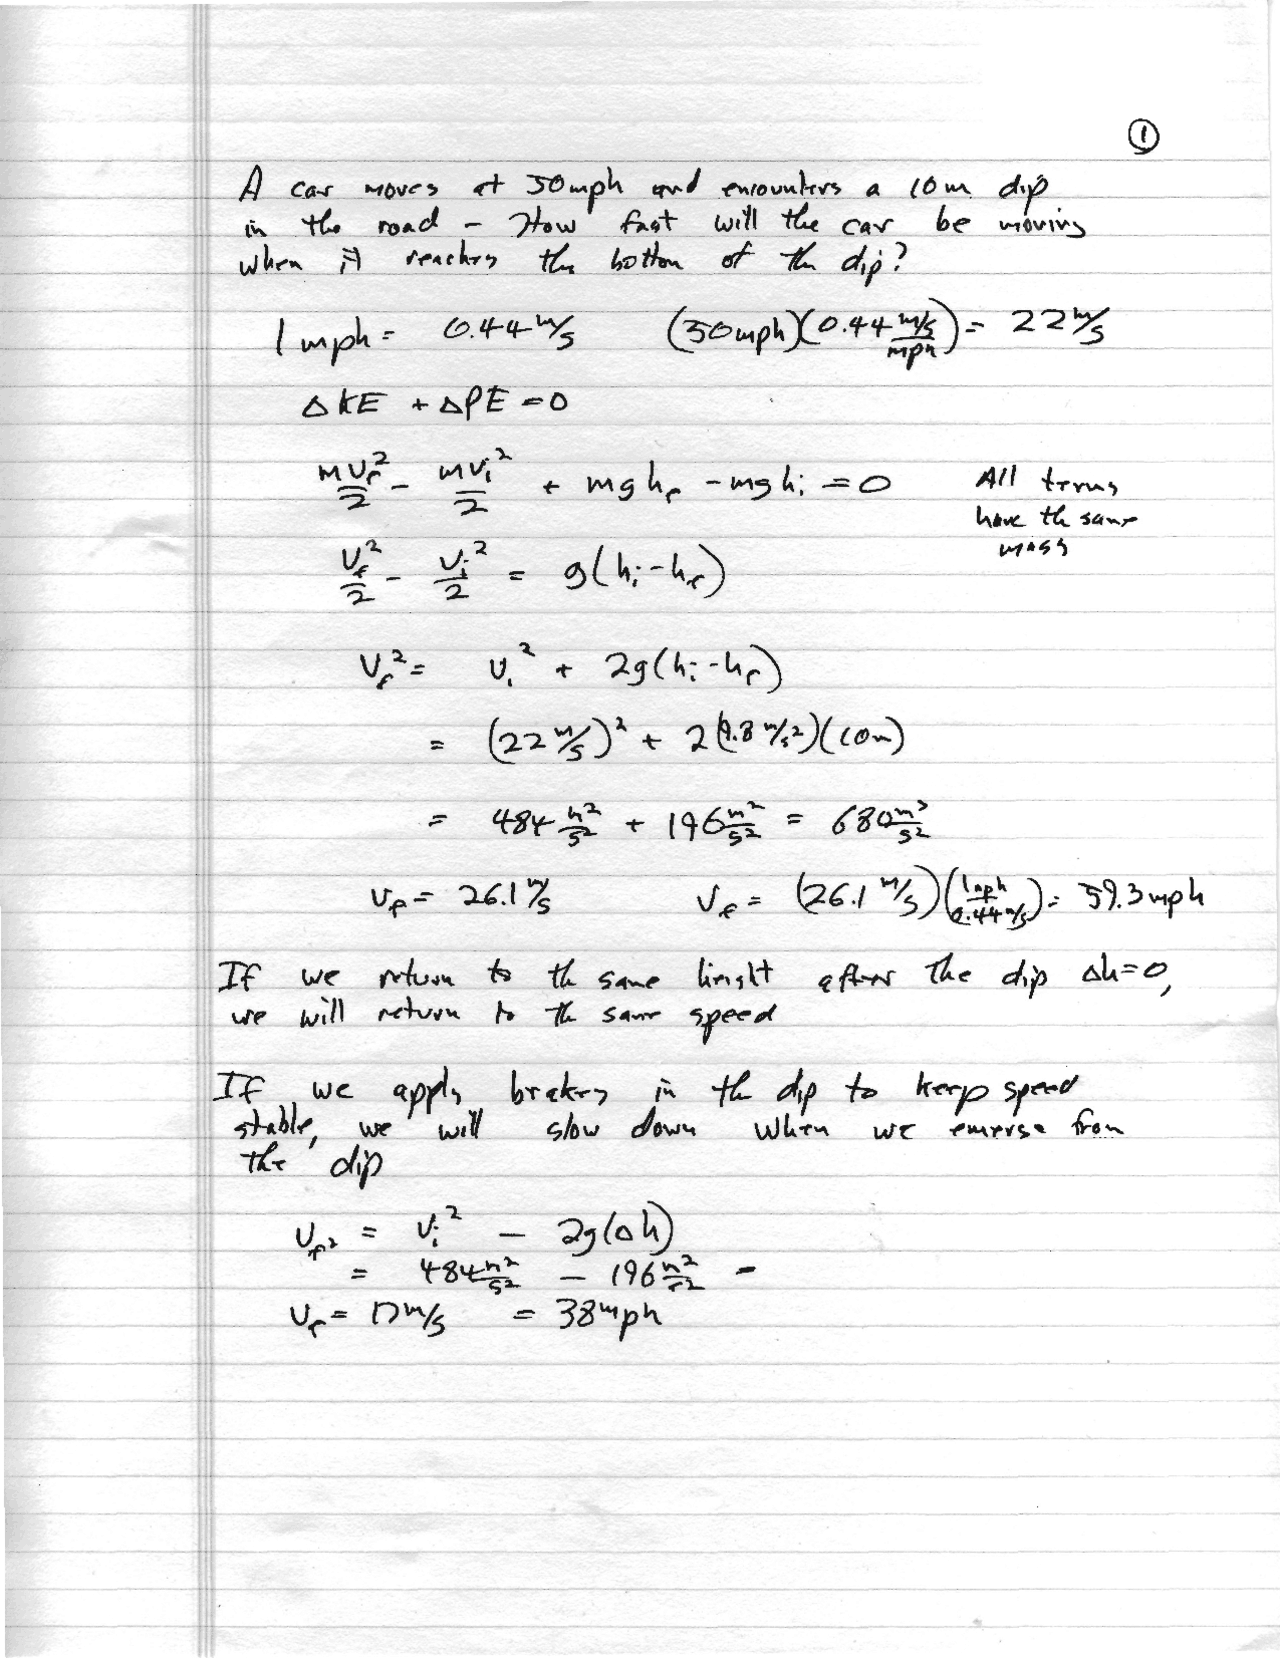 ①
A car moves at 50mph and encounters a 10m dip
in the road - How fast will the car be moving
when it reaches the bottom of the dip?
1 mph = 0.44 m/s (50mph)(0.44 m/s/mph) = 22 m/s
ΔKE + ΔPE = 0
mv_f²/2 - mv_i²/2 + mgh_f - mgh_i = 0 All terms
have the same
mass
v_f²/2 - v_i²/2 = g(h_i - h_f)
v_f² = v_i² + 2g(h_i - h_f)
= (22 m/s)² + 2(9.8 m/s²)(10m)
= 484 m²/s² + 196 m²/s² = 680 m²/s²
v_f = 26.1 m/s v_f = (26.1 m/s)(1mph/0.44 m/s) = 59.3 mph
If we return to the same height after the dip Δh=0,
we will return to the same speed
If we apply brakes in the dip to keep speed
stable, we will slow down when we emerge from
the dip
v_f² = v_i² - 2g(Δh)
= 484 m²/s² - 196 m²/s² -
v_f = 17 m/s = 38 mph